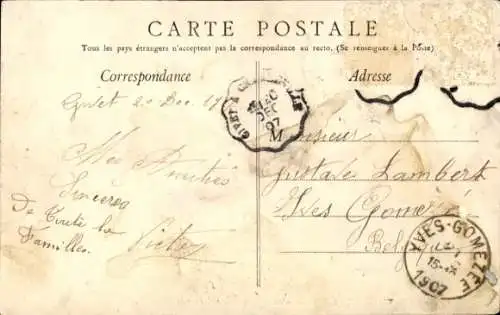 CARTE POSTALE
Tous les pays étrangers n'acceptent pas la correspondance au recto. (Se renseigner à la Poste)
Correspondance
Adresse
Givet 20 Dec
GIVET A
20
DEC
07
Mes Amitiés
Sincères
De toute la
Familles.
Victor
Monsieur
Gustave Lambert
Yves Gomezée
Belg
YVES-GOMEZEE
1907